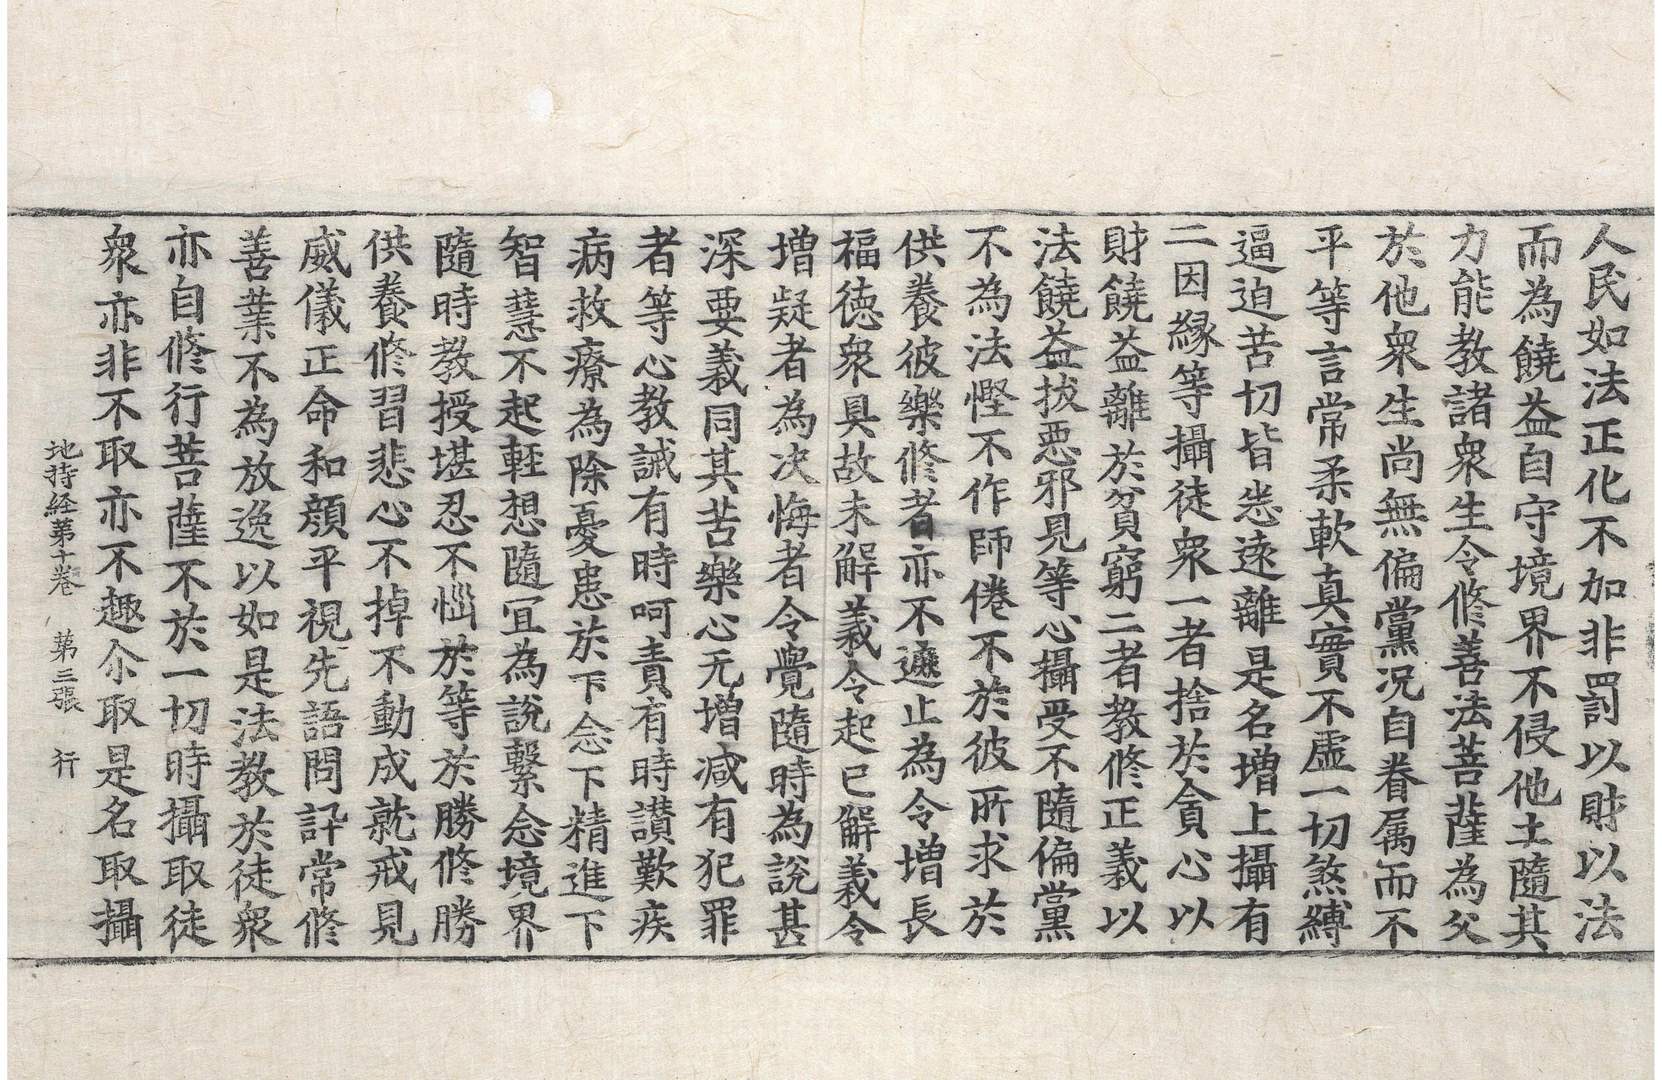 人民如法正化不加非罰以財以法
而為饒益自守境界不侵他土隨其
力能教諸衆生令修善法菩薩為父
於他衆生尚無偏黨況自眷属而不
平等言常柔軟真實不虛一切煞縛
逼迫苦切皆悉遠離是名增上攝有
二因縁等攝徒衆一者捨於貪心以
財饒益離於貧窮二者教修正義以
法饒益拔惡邪見等心攝受不隨偏黨
不為法慳不作師倦不於彼所求於
供養彼樂修者亦不遮止為令增長
福徳衆具故未解義令起已解義令
增疑者為決悔者令覺隨時為說甚
深要義同其苦樂心无増减有犯罪
者等心教誡有時呵責有時讃歎疾
病救療為除憂患於下念下精進下
智慧不起輕想隨冝為說繫念境界
隨時教授堪忍不惱於等於勝修勝
供養修習悲心不掉不動成就戒見
威儀正命和顔平視先語問訊常修
善業不為放逸以如是法教於徒衆
亦自修行菩薩不於一切時攝取徒
衆亦非不取亦不趣尒取是名取攝
地持経苐十巻 苐三張 行